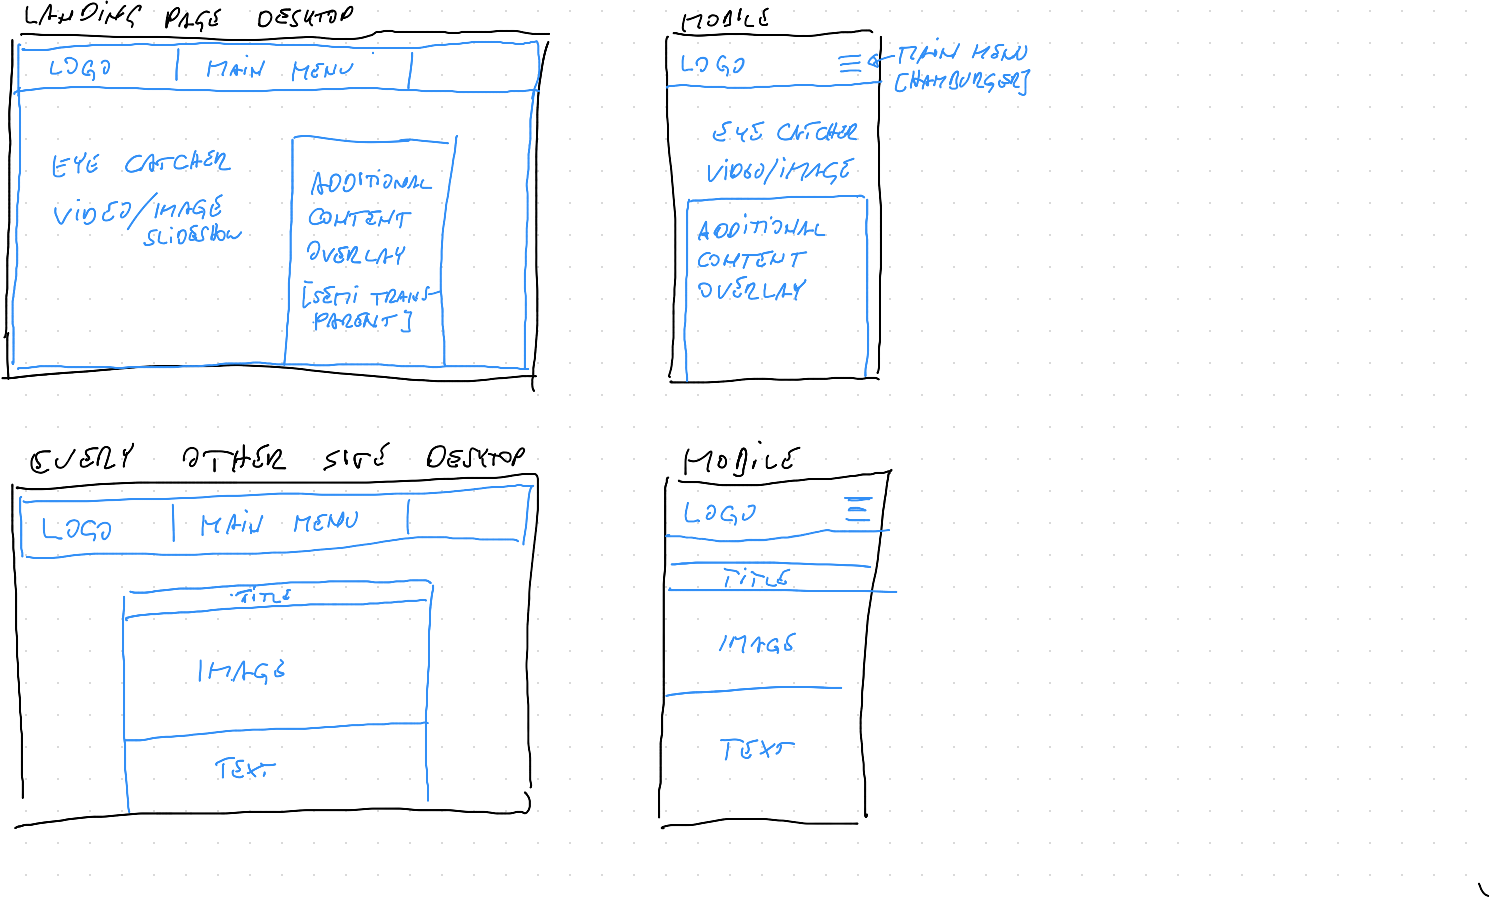 LANDING PAGE DESKTOP
LOGO
MAIN MENU
EYE CATCHER
VIDEO/IMAGE
SLIDESHOW
ADDITIONAL
CONTENT
OVERLAY
[SEMI TRANS-
PARENT]
MOBILE
LOGO
MAIN MENU
[HAMBURGER]
EYE CATCHER
VIDEO/IMAGE
ADDITIONAL
CONTENT
OVERLAY
EVERY OTHER SITE DESKTOP
LOGO
MAIN MENU
TITLE
IMAGE
TEXT
MOBILE
LOGO
TITLE
IMAGE
TEXT